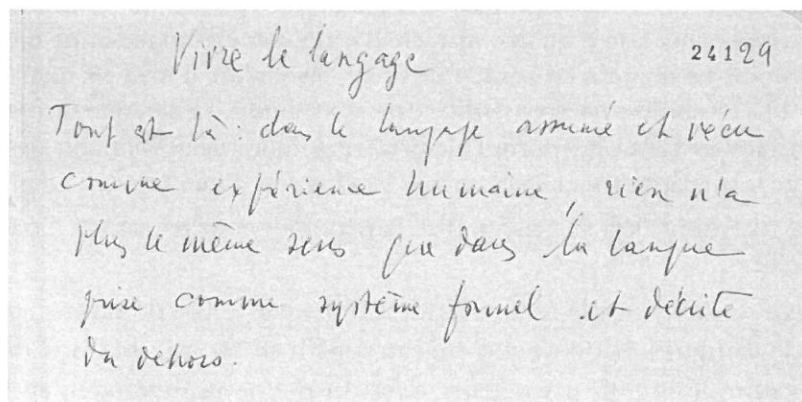 Vivre le langage 24129
Tout est là : dans le langage assumé et vécu
comme expérience humaine, rien n'a
plus le même sens que dans la langue
prise comme système formel et décrite
du dehors.